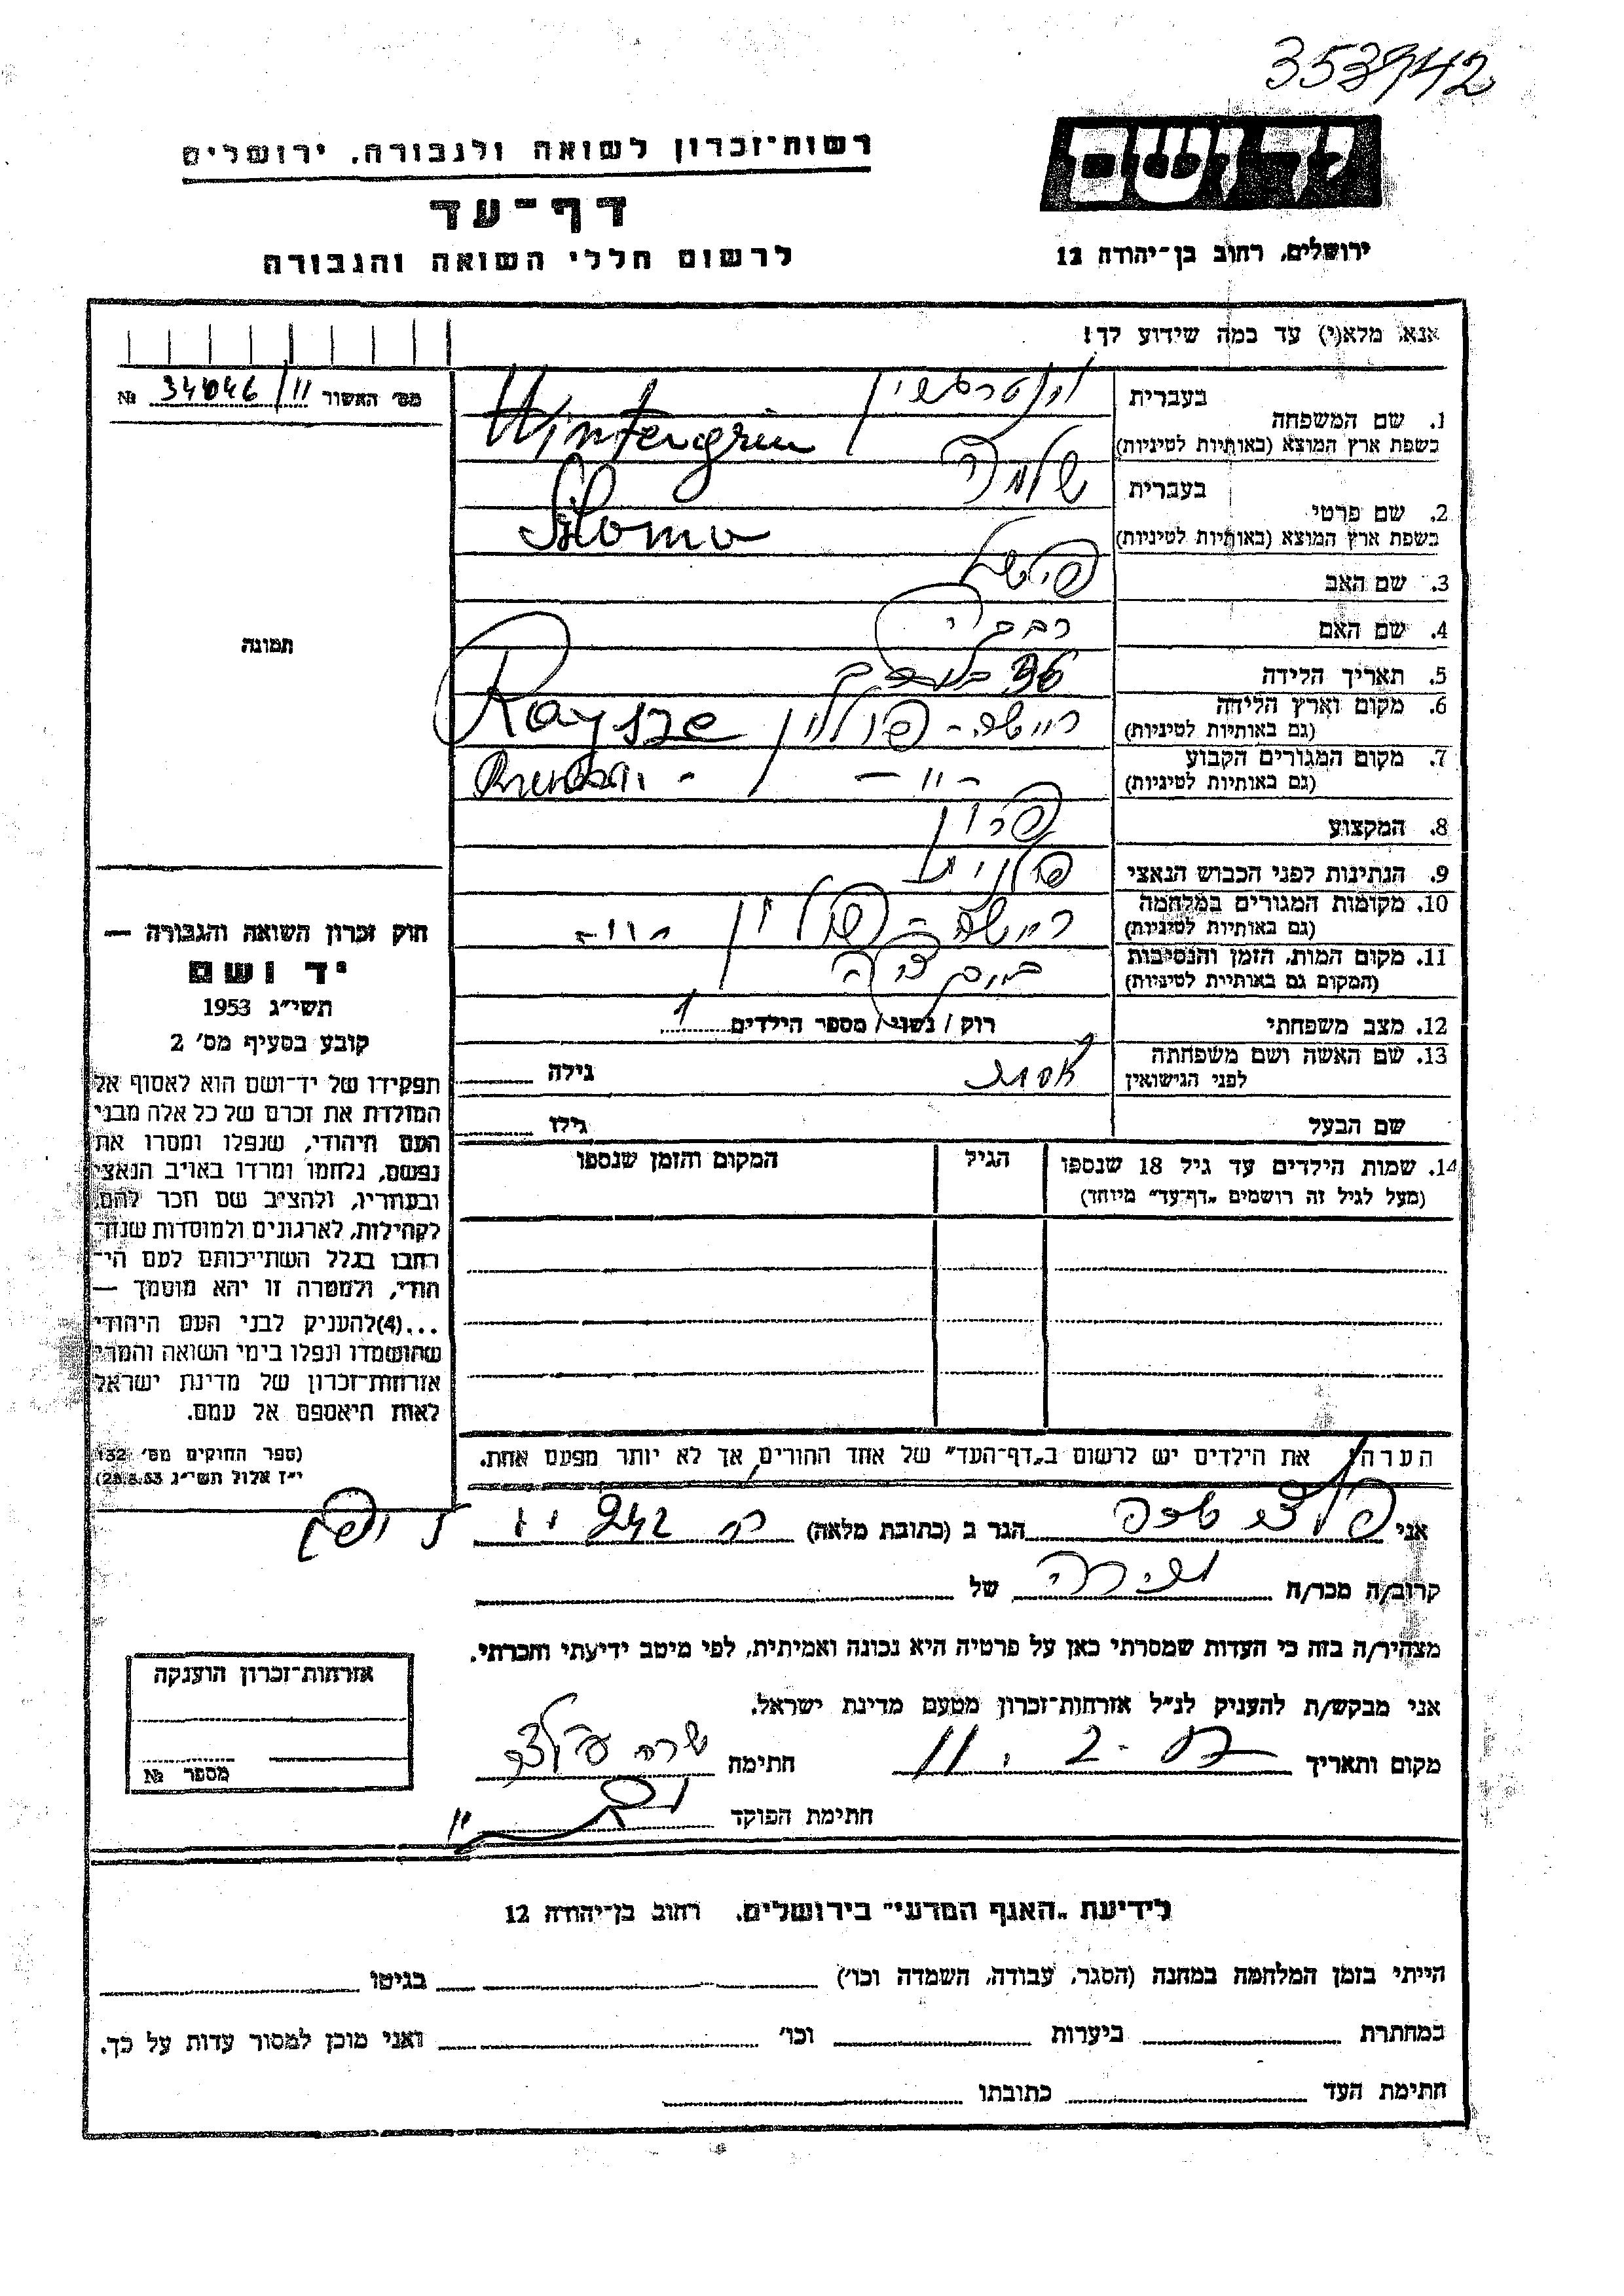 353942
יד ושם
ירושלים, רחוב בן־יהודה 12
רשות־זכרון לשואה ולגבורה, ירושלים
דף־עד
לרשום חללי השואה והגבורה
אנא, מלא(י) עד כמה שידוע לך!
מס׳ האשור 34046/11 №
1. שם המשפחה
בעברית
בשפת ארץ המוצא (באותיות לטיניות) Wintergrün
2. שם פרטי
בעברית שלמה
בשפת ארץ המוצא (באותיות לטיניות) Szlomo
3. שם האב
4. שם האם
5. תאריך הלידה
6. מקום וארץ הלידה
(גם באותיות לטיניות) פולין
7. מקום המגורים הקבוע
(גם באותיות לטיניות) - 〃 -
8. המקצוע
9. הנתינות לפני הכבוש הנאצי פולנית
10. מקומות המגורים במלחמה
(גם באותיות לטיניות) פולין - 〃 -
11. מקום המות, הזמן והנסיבות
(המקום גם באותיות לטיניות)
12. מצב משפחתי רוק / נשוי / מספר הילדים 1
13. שם האשה ושם משפחתה
לפני הנישואין אסתר גילה
שם הבעל גילו
14. שמות הילדים עד גיל 18 שנספו
(מעל לגיל זה רושמים „דף־עד״ מיוחד)
הגיל
המקום והזמן שנספו
תמונה
חוק זכרון השואה והגבורה —
יד ושם
תשי״ג 1953
קובע בסעיף מס׳ 2
תפקידו של יד־ושם הוא לאסוף אל
המולדת את זכרם של כל אלה מבני
העם היהודי, שנפלו ומסרו את
נפשם, נלחמו ומרדו באויב הנאצי
ובעוזריו, ולהציב שם וזכר להם,
לקהילות, לארגונים ולמוסדות שנח־
רבו בגלל השתייכותם לעם הי־
הודי, ולמטרה זו יהא מוסמך —
...(4) להעניק לבני העם היהודי
שהושמדו ונפלו בימי השואה והמרי
אזרחות־זכרון של מדינת ישראל
לאות היאספם אל עמם.
(ספר החוקים מס׳ 132
י״ז אלול תשי״ג 28.8.53)
הערה: את הילדים יש לרשום ב„דף־העד״ של אחד ההורים, אך לא יותר מפעם אחת.
אני הגר ב (כתובת מלאה)
קרוב/ה מכר/ה של
מצהיר/ה בזה כי העדות שמסרתי כאן על פרטיה היא נכונה ואמיתית, לפי מיטב ידיעתי והכרתי.
אני מבקש/ת להעניק לנ״ל אזרחות־זכרון מטעם מדינת ישראל.
מקום ותאריך חתימה שרה
חתימת הפוקד
אזרחות־זכרון הוענקה
מספר №
לידיעת „האגף המדעי״ בירושלים, רחוב בן־יהודה 12
הייתי בזמן המלחמה במחנה (הסגר, עבודה, השמדה וכו׳) בגיטו
במחתרת ביערות וכו׳ ואני מוכן למסור עדות על כך.
חתימת העד כתובתו